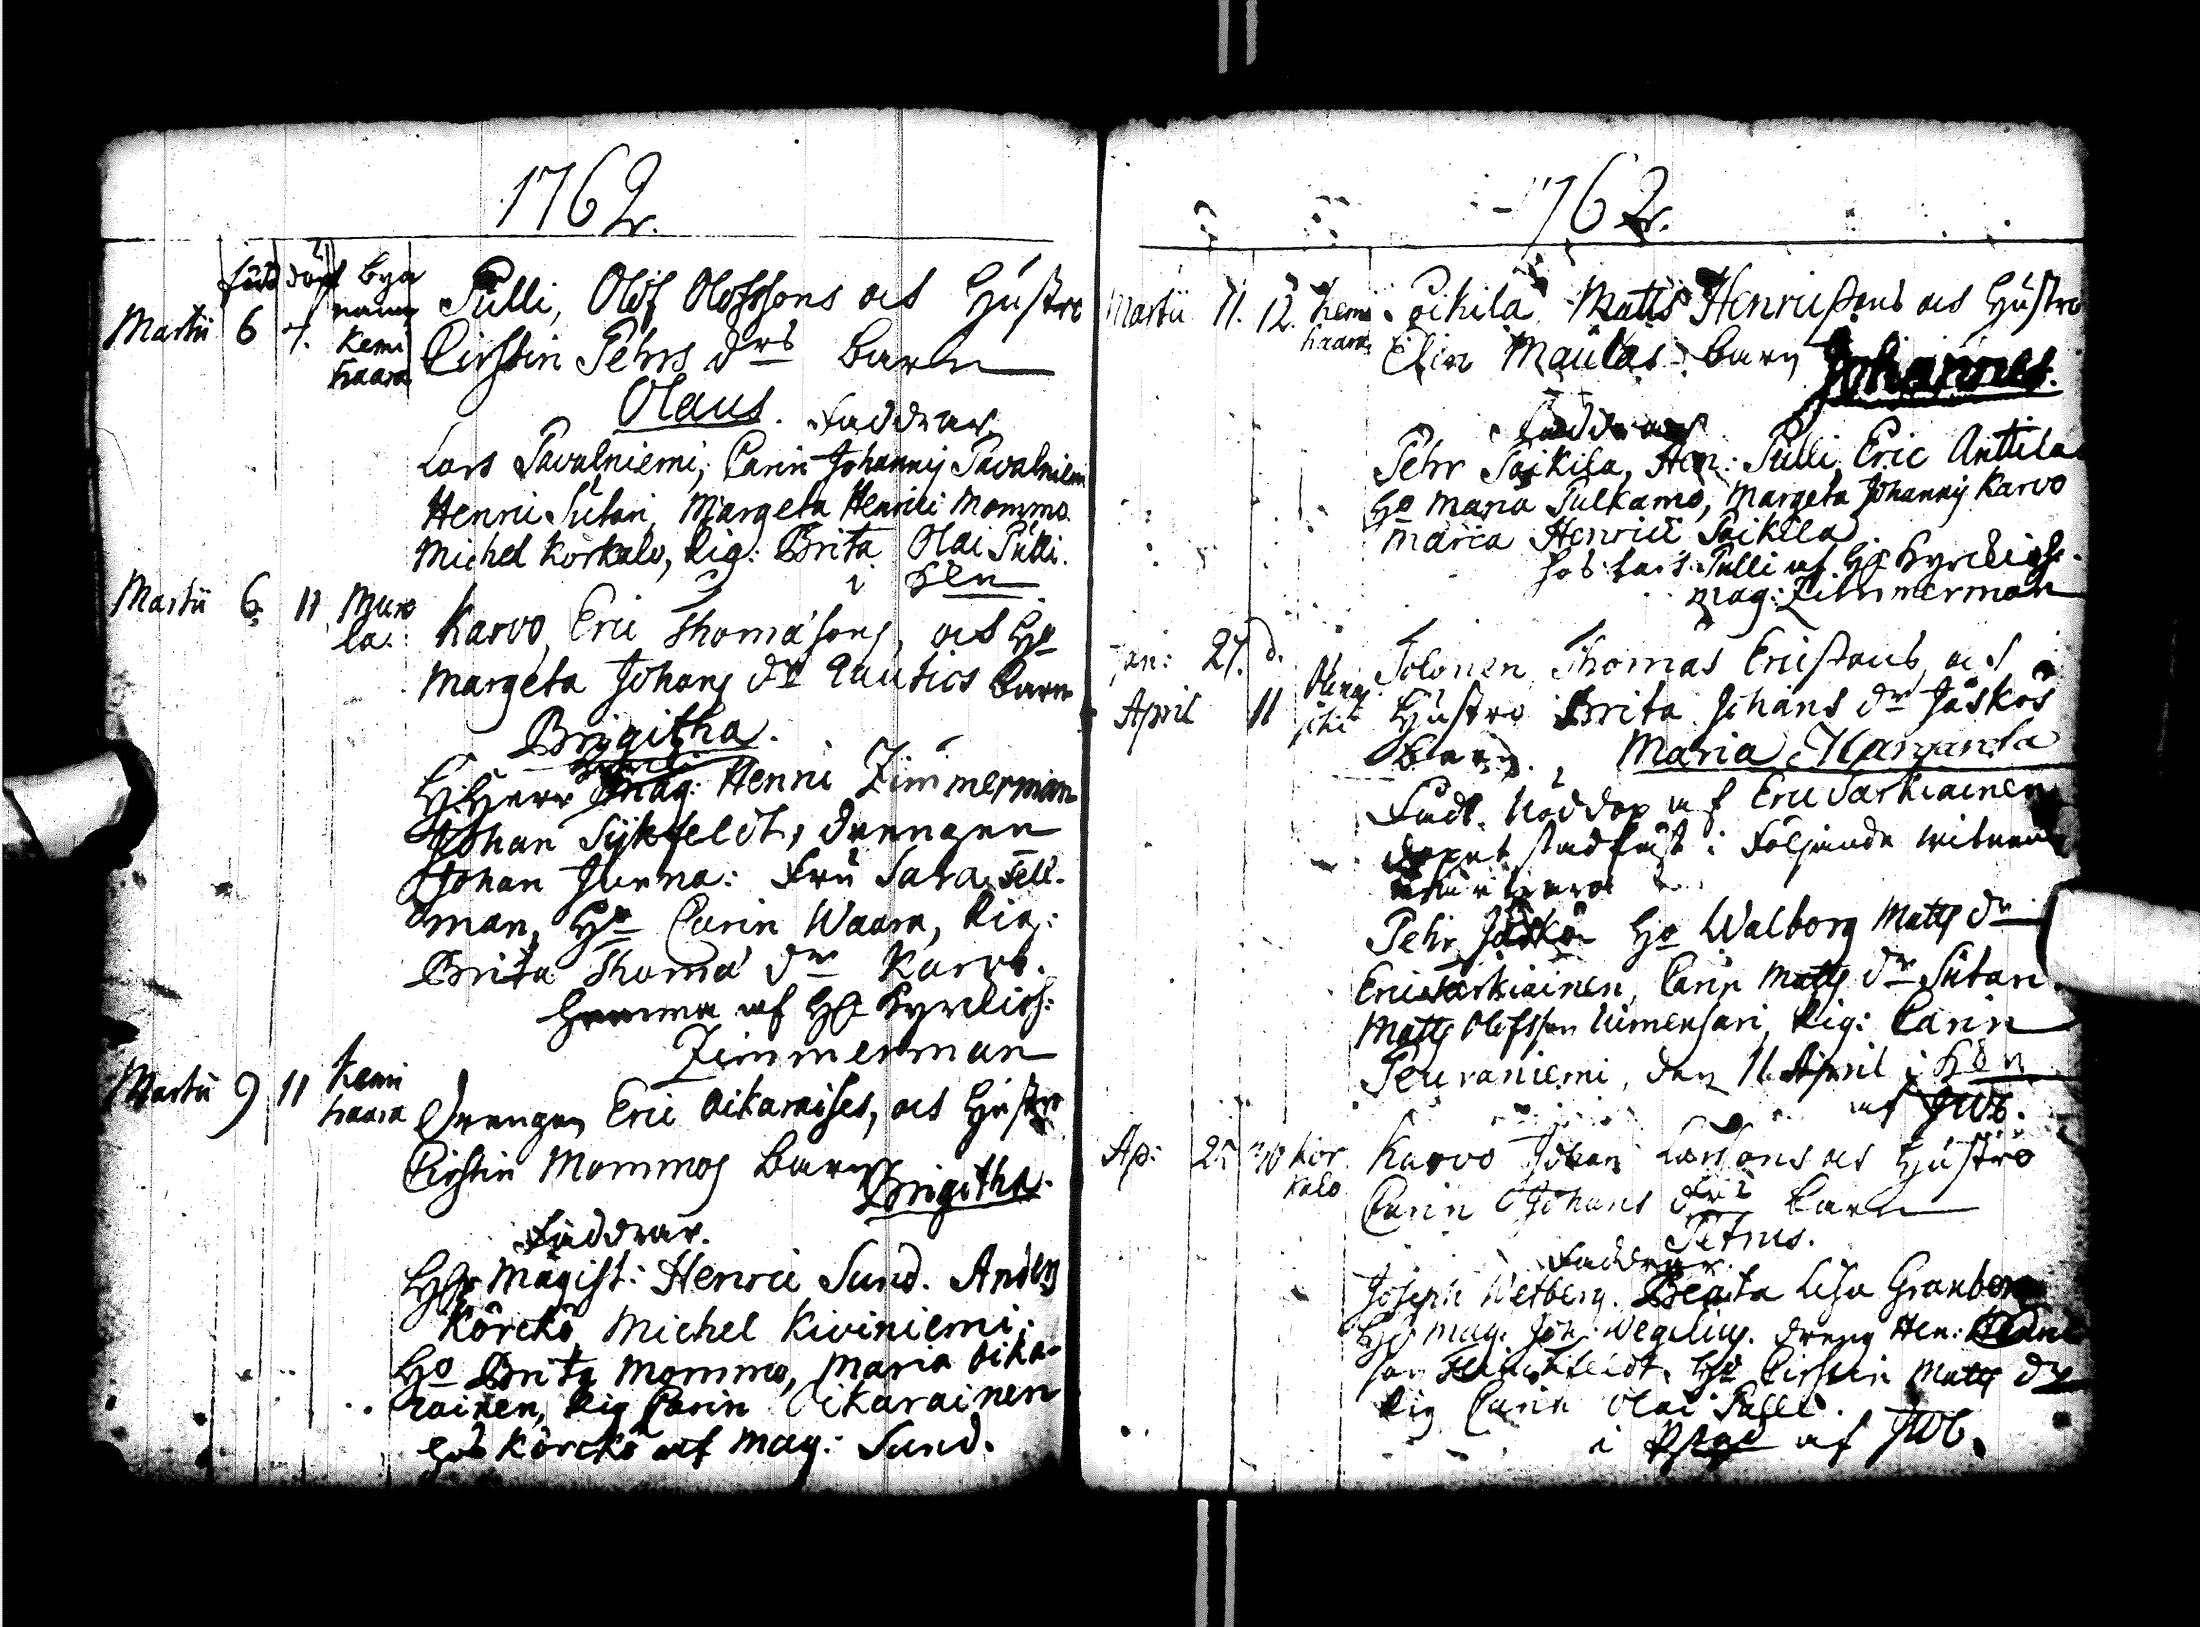 1762.
född döpt Byn
namn
Martii 6 7. Kemi
haara
Pulli, Olof Olofssons och Hustro
Cirstin Pehrs drs barn
Olaus. Faddrar
Lars Pavalniemi, Carin Johannis Pavalniemi
Henric Sutari, Margeta Henrici Mommo.
Michel Körkalo, Pig: Brita Olai Pulli.
i
Martii 6. 11 Muro
la:
Karvo, Eric Thomæsons, och Ho
Margeta Johans dr Lautics barn
Brigitha.
H Herr Mag: Henric Zimmerman
Johan Sykfeldt, drengen
Johan Junna: Fru Sara Fell-
man, Ho Carin Waara, Pig:
Brita Thomæ dr Karvo.
Hemma af Hr Kyrckioh:
Zimmerman
Martii 9 11 Kemi
haara
Drengen Eric Oikaraises, och Hustro
Cirstin Mommos barn
Brigitha.
Faddrar.
Hr Magist: Henric Sund. Anders
Körckö, Michel Kiviniemi,
Ho Brita Mommo, Maria Oika-
rainen, Pig Carin Oikarainen
hos Körckö af Mag: Sund.
1762.
Martii 11. 12. Kemi
haara
Poikila Matts Henricssons och Hustro
Elin Maulas barn Johannes.
Faddrar
Pehr Poikila, Hen: Pulli Eric Anttila
Ho Maria Pulkamo, Margeta Johannis Karvo
Maria Henrici Poikela
hos Lars Pulli af Hr Kyrckioh.
Mag: Zimmerman
Jan: 27. d.
April 11
Tolonen, Thomas Ericssons och
Hustro Brita Johans dr Jäskös
barn. Maria Margareta
Fådt Nöddop af Eric Sarkiainen
dopet stadfäst i följande witnens
närwaro
Pehr Jäskö Ho Walborg Matts dr
Eric Sarkiainen, Carin Matts dr Sutari
Matts Olofsson Nimensari, Pig: Carin
Peuraniemi, den 11 April i
af JWB.
Ap: 25 30 Kör
kalo
Karvo Johan Larssons och Hustro
Carin Johans drs barn
Petrus.
Faddrar.
Joseph Wetberg. Beata Lisa Granberg
Mag. Joh: Wegelius. dreng Hen:
Ho Cirstin Matts dr
Pig Carin Olai Pulli.
i af JWB.